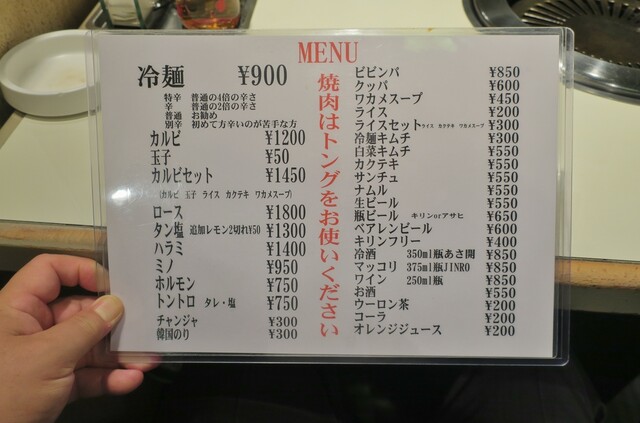 MENU
冷麺 ¥900
特辛 普通の4倍の辛さ
辛 普通の2倍の辛さ
普通 お勧め
別辛 初めて方辛いのが苦手な方
カルビ ¥1200
玉子 ¥50
カルビセット ¥1450
(カルビ 玉子 ライス カクテキ ワカメスープ)
ロース ¥1800
タン塩 追加レモン2切れ¥50 ¥1300
ハラミ ¥1400
ミノ ¥950
ホルモン ¥750
トントロ タレ・塩 ¥750
チャンジャ ¥300
韓国のり ¥300
焼肉はトングをお使いください
ビビンバ ¥850
クッパ ¥600
ワカメスープ ¥450
ライス ¥200
ライスセット ライス カクテキ ワカメスープ ¥300
冷麺キムチ ¥300
白菜キムチ ¥550
カクテキ ¥550
サンチュ ¥550
ナムル ¥550
生ビール ¥550
瓶ビール キリンorアサヒ ¥650
ベアレンビール ¥600
キリンフリー ¥400
冷酒 350ml瓶あさ開 ¥850
マッコリ 375ml瓶JINRO ¥850
ワイン 250ml瓶 ¥850
お酒 ¥550
ウーロン茶 ¥200
コーラ ¥200
オレンジジュース ¥200